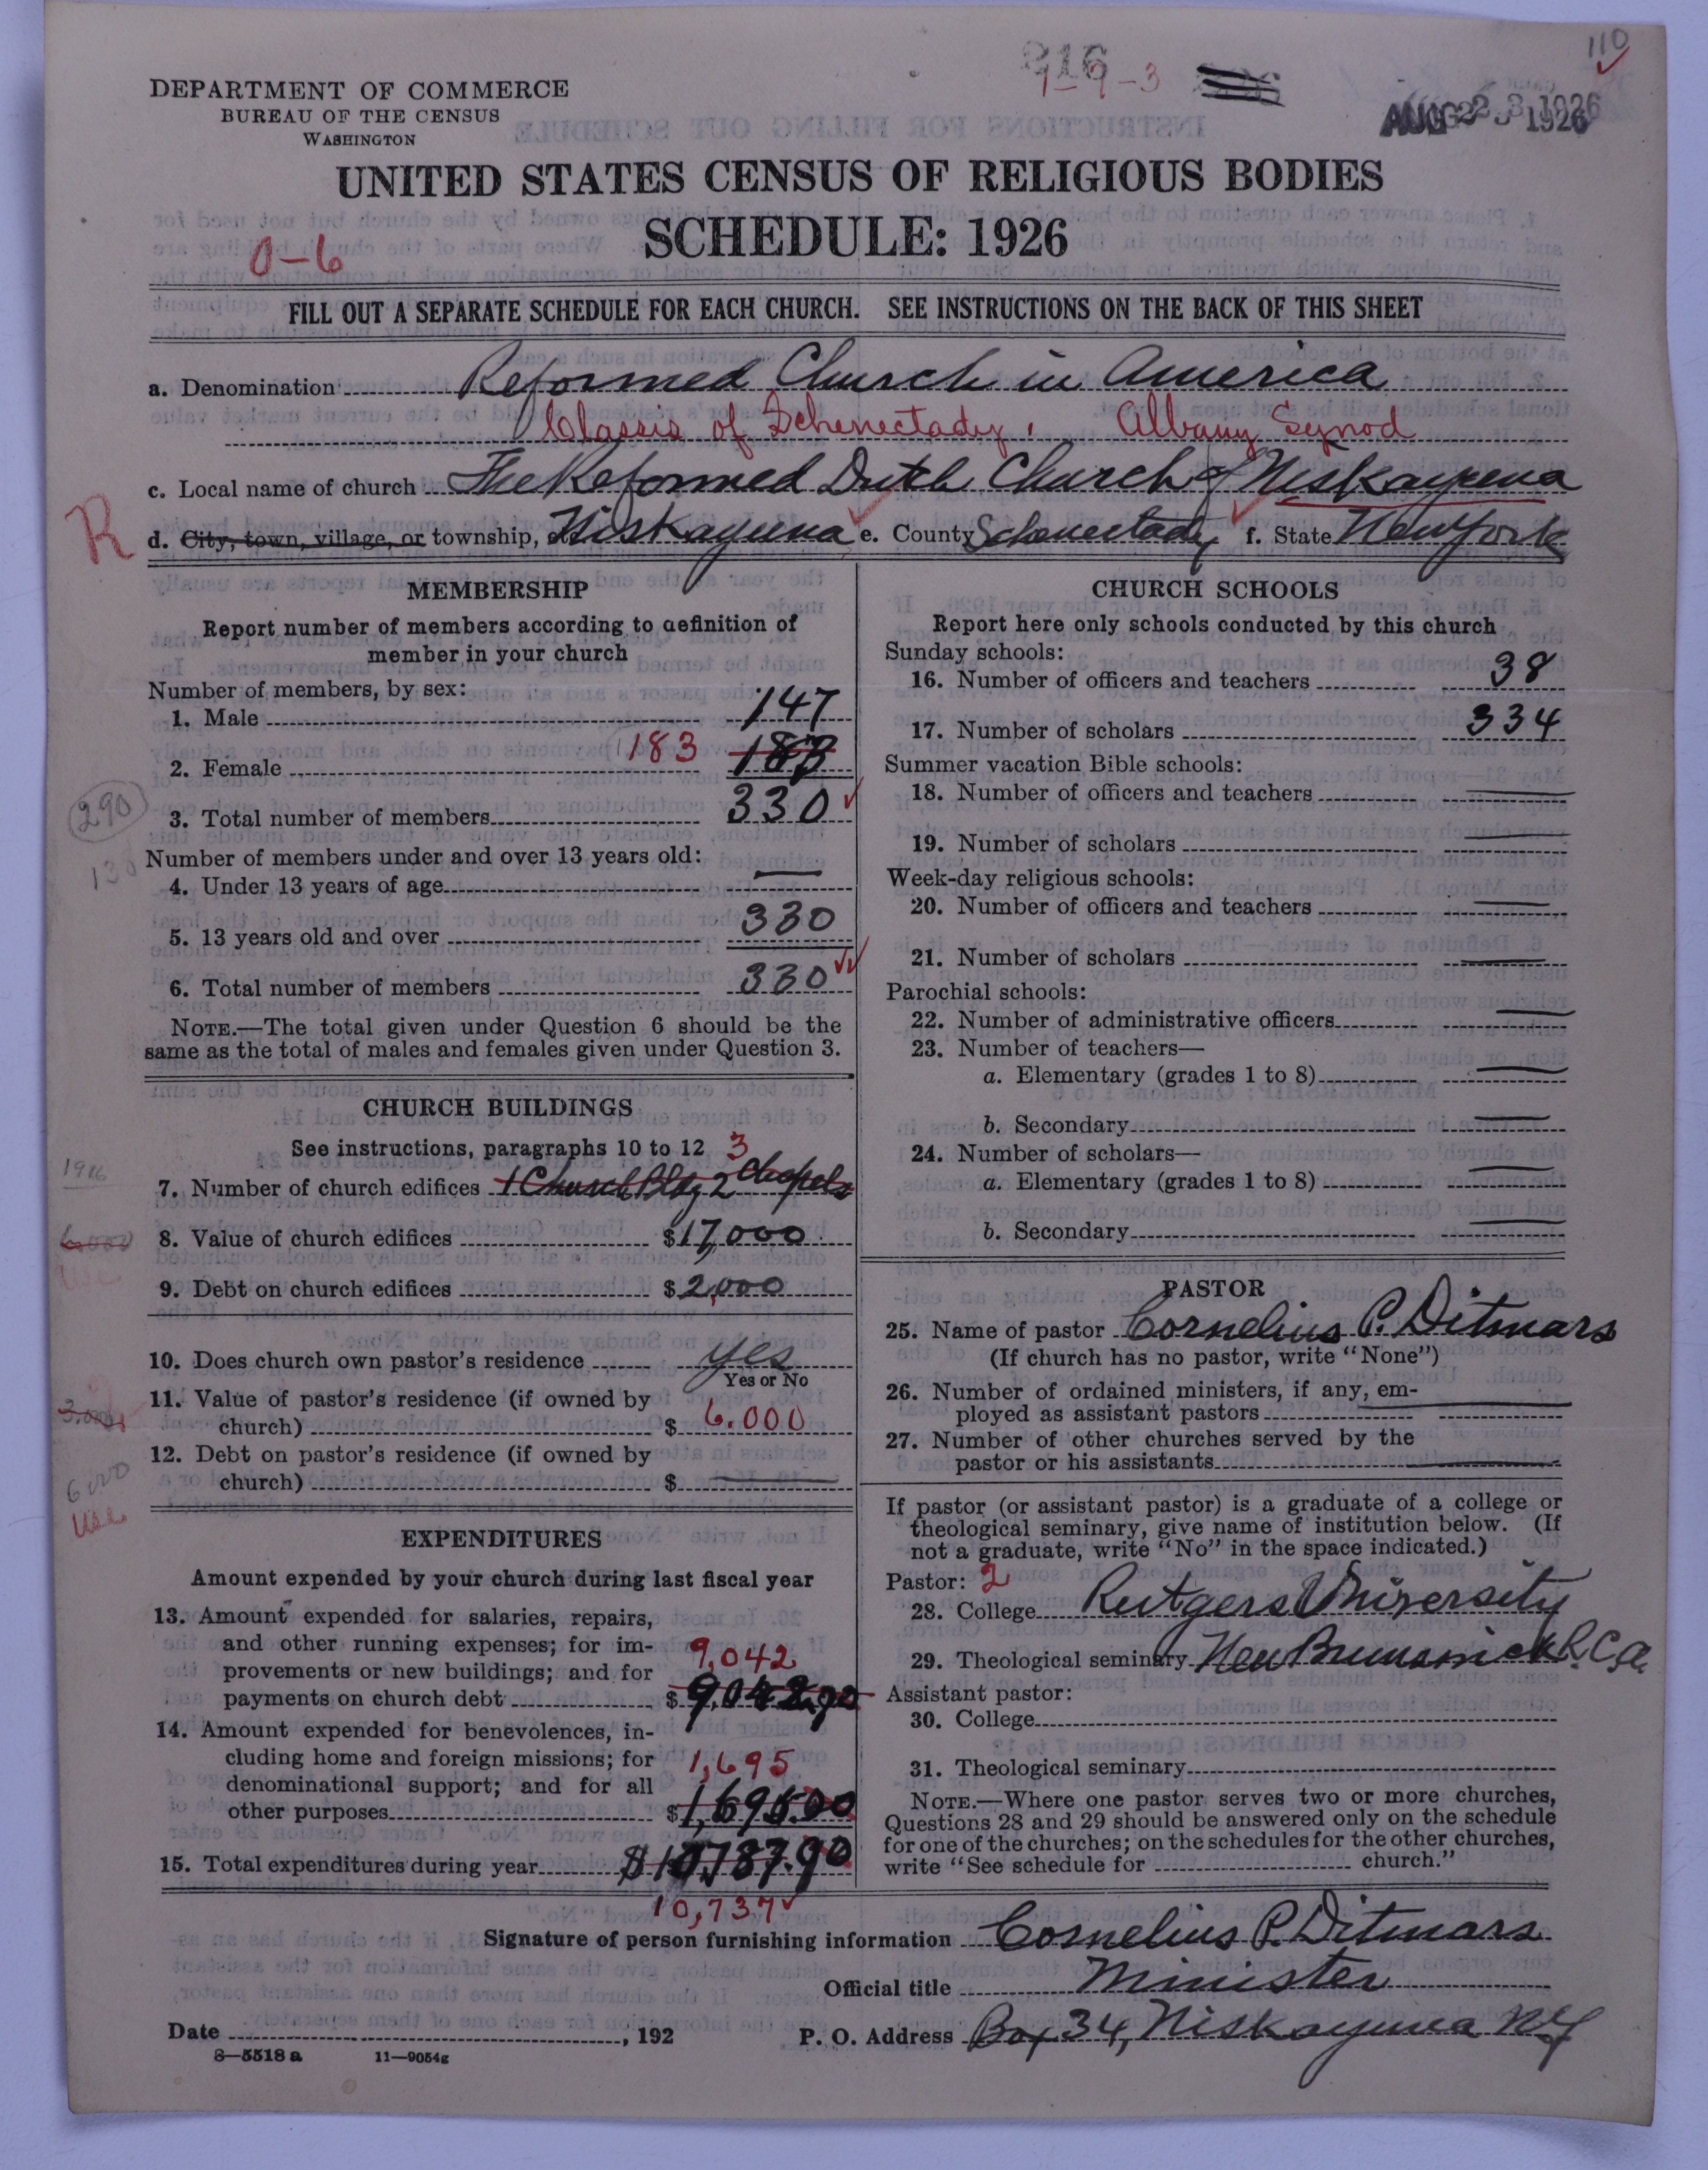 110
916
1-9-3
AUG 23 1926
DEPARTMENT OF COMMERCE
BUREAU OF THE CENSUS
WASHINGTON
UNITED STATES CENSUS OF RELIGIOUS BODIES
SCHEDULE: 1926
0-6
FILL OUT A SEPARATE SCHEDULE FOR EACH CHURCH. SEE INSTRUCTIONS ON THE BACK OF THIS SHEET
a. Denomination Reformed Church in America
Classis of Schenectady. Albany Synod
c. Local name of church The Reformed Dutch Church of Niskayuna
R
d. City, town, village, or township, Niskayuna e. County Schenectady f. State New York
MEMBERSHIP
Report number of members according to definition of
member in your church
Number of members, by sex:
1. Male 147
2. Female 183 183
290
3. Total number of members 330
Number of members under and over 13 years old:
4. Under 13 years of age —
5. 13 years old and over 330
6. Total number of members 330
NOTE.—The total given under Question 6 should be the
same as the total of males and females given under Question 3.
CHURCH BUILDINGS
See instructions, paragraphs 10 to 12 3
1916
7. Number of church edifices 1 Church Bldg 2 chapels
6,000
8. Value of church edifices $17,000
9. Debt on church edifices $2,000
10. Does church own pastor's residence yes
Yes or No
11. Value of pastor's residence (if owned by
church) $ 6.000
3.000
12. Debt on pastor's residence (if owned by
church) $ —
6000
use
EXPENDITURES
Amount expended by your church during last fiscal year
13. Amount expended for salaries, repairs,
and other running expenses; for im-
provements or new buildings; and for 9,042
payments on church debt $ 9,042.90
14. Amount expended for benevolences, in-
cluding home and foreign missions; for
denominational support; and for all 1,695
other purposes $1,695.00
15. Total expenditures during year $10,737.90
10,737
CHURCH SCHOOLS
Report here only schools conducted by this church
Sunday schools:
16. Number of officers and teachers 38
17. Number of scholars 334
Summer vacation Bible schools:
18. Number of officers and teachers —
19. Number of scholars —
Week-day religious schools:
20. Number of officers and teachers —
21. Number of scholars —
Parochial schools:
22. Number of administrative officers —
23. Number of teachers—
a. Elementary (grades 1 to 8) —
b. Secondary —
24. Number of scholars—
a. Elementary (grades 1 to 8) —
b. Secondary —
PASTOR
25. Name of pastor Cornelius P. Ditmars
(If church has no pastor, write "None")
26. Number of ordained ministers, if any, em-
ployed as assistant pastors —
27. Number of other churches served by the
pastor or his assistants —
If pastor (or assistant pastor) is a graduate of a college or
theological seminary, give name of institution below. (If
not a graduate, write "No" in the space indicated.)
Pastor: 2
28. College Rutgers University
29. Theological seminary New Brunswick R.C.A.
Assistant pastor:
30. College
31. Theological seminary
NOTE.—Where one pastor serves two or more churches,
Questions 28 and 29 should be answered only on the schedule
for one of the churches; on the schedules for the other churches,
write "See schedule for church."
Signature of person furnishing information Cornelius P. Ditmars
Official title Minister
Date , 192 P. O. Address Box 34, Niskayuna NY
8—5518 a 11—9054g